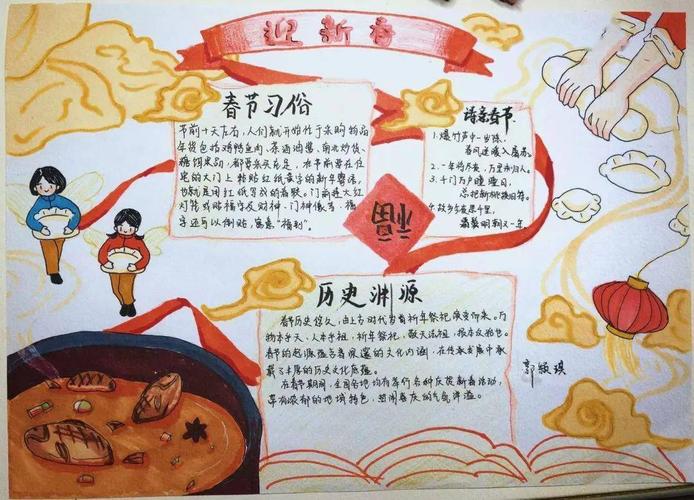 迎新春
春节习俗
节前十天左右，人们就开始忙于采购物品
年货包括鸡鸭鱼肉、茶酒油酱、南北炒货、
糖饵果品，都要采买充足，在节前要在住
宅的大门上粘贴红纸黄字的新年寄语，
也就是用红纸写成的春联。门前挂大红
灯笼或贴福字及财神、门神像等，福
字还可以倒贴，寓意“福到”。
诗意春节
1、爆竹声中一岁除，
春风送暖入屠苏。
2、一年将尽夜，万里未归人。
3、千门万户曈曈日，
总把新桃换旧符。
4、故乡今夜思千里，
霜鬓明朝又一年。
福
历史渊源
春节历史悠久，由上古时代岁首祈年祭祀演变而来。万
物本乎天，人本乎祖，祈年祭祀、敬天法祖，报本反始也。
春节的起源蕴含着深邃的文化内涵，在传承发展中承
载了丰厚的历史文化底蕴。
在春节期间，全国各地均有举行各种庆贺新春活动，
带有浓郁的地域特色，热闹喜庆的气氛洋溢。